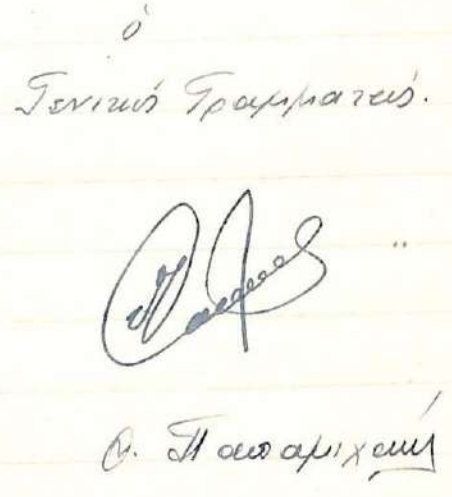 ὁ
Γενικός Γραμματεύς.
Θ. Παπαμιχαήλ